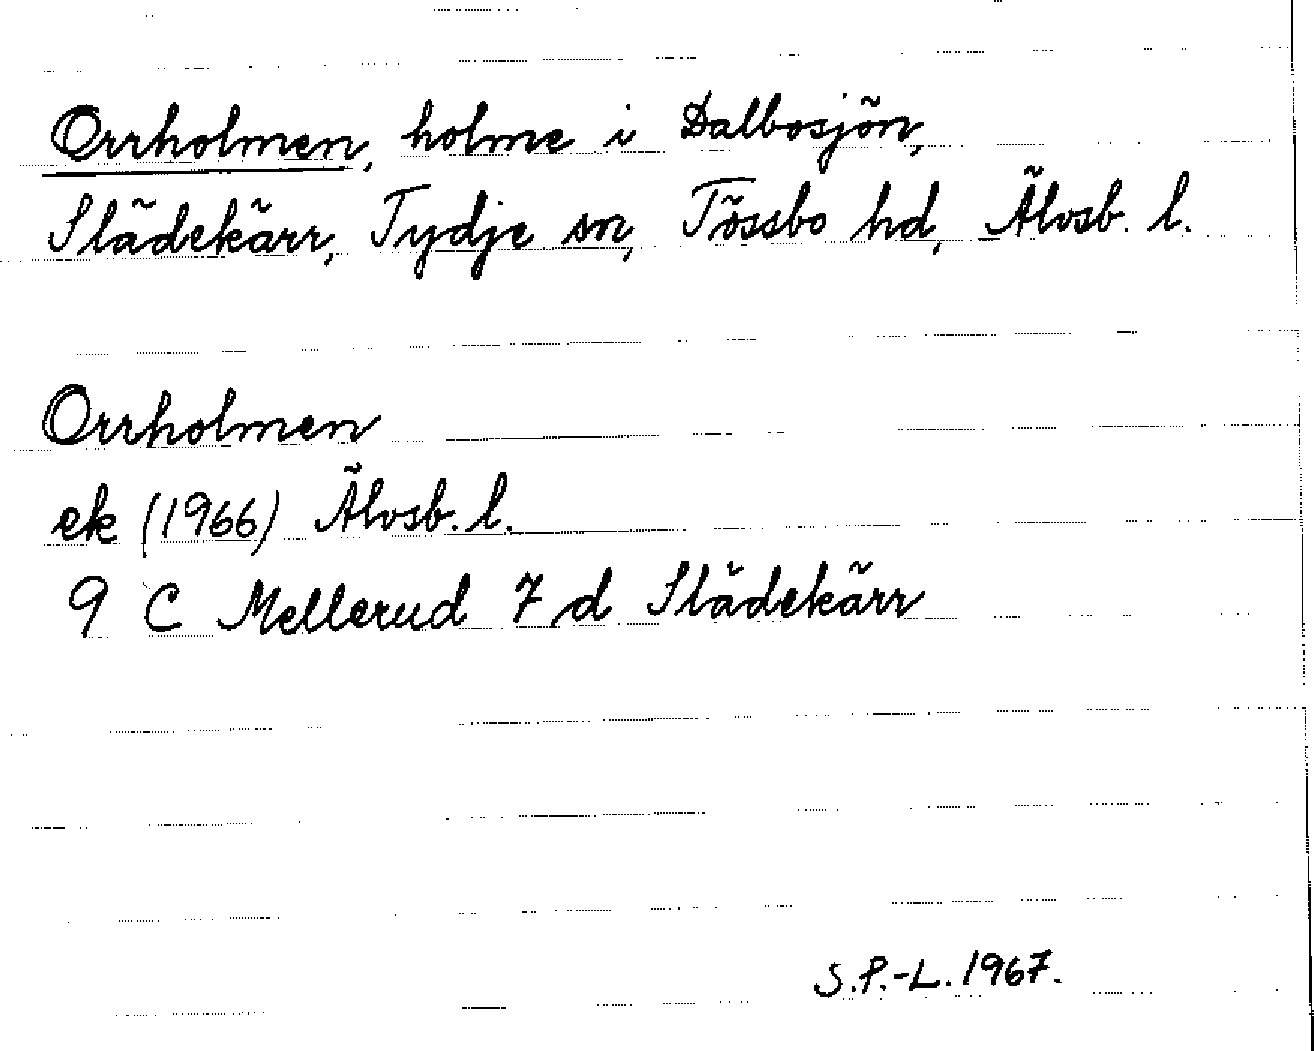 Orrholmen, holme i Dalbosjön,
Slädekärr, Tydje sn, Tössbo hd, Älvsb. l.
Orrholmen
ek (1966) Älvsb. l.
9 C Mellerud 7 d Slädekärr
S.P.-L. 1967.